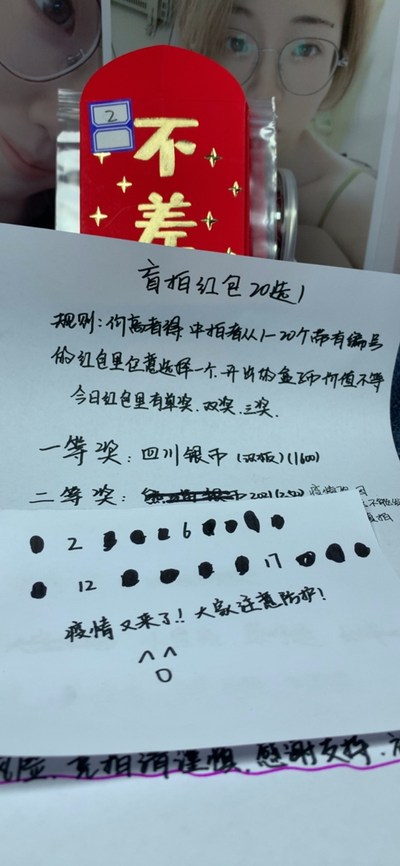 2
不差
盲拍红包20选1
规则：价高者得，中拍者从1-20个带有编号
的红包里任意选择一个，开出的盒币价值不等
今日红包里有单奖、双奖、三奖．
一等奖：四川银币（双板）（1600）
二等奖：
2 6
12 17
疫情又来了！！大家注意防护！
竞拍请谨慎，感谢支持．